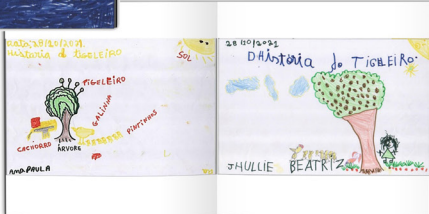 DATA, 28/10/2021.
HISTORIA O TIGELEIRO
SOL
TIGELEIRO
GALINHA
PINTINHOS
CACHORRO
ÁRVORE
ANA PAULA
28/10/2021
D HISTORIA do TIGELEIRO.
JHULLIE BEATRIZ